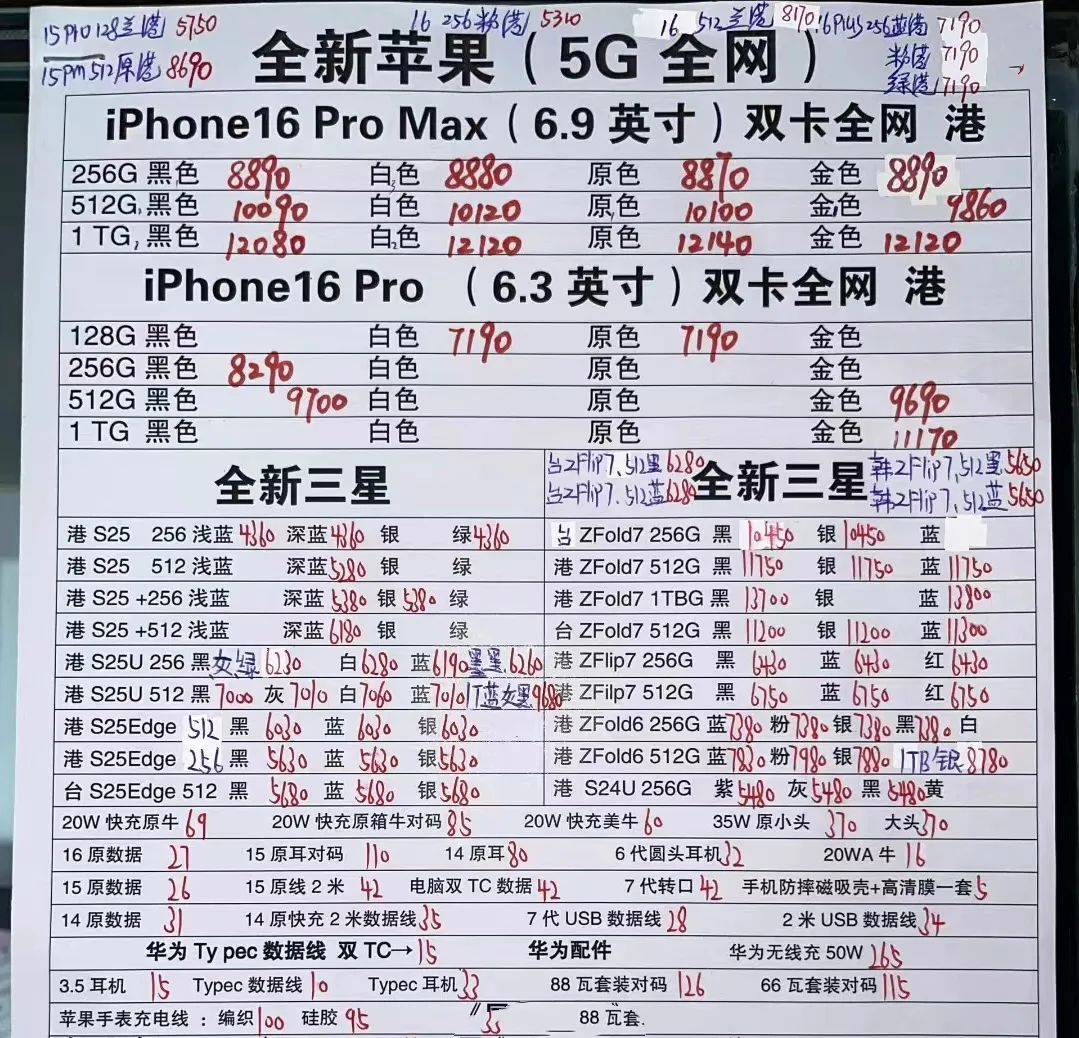 15Pro128兰港 5750 16 256粉港 5310 16 512兰港 8170 16Plus256蓝港 7190
15PM512原港 8690 粉港 7190
绿港 7190
全新苹果（5G 全网）
iPhone16 Pro Max（6.9 英寸）双卡全网 港
256G 黑色 8890 白色 8880 原色 8870 金色 8890
512G 黑色 10090 白色 10120 原色 10100 金色 9860
1 TG 黑色 12080 白色 12120 原色 12140 金色 12120
iPhone16 Pro （6.3 英寸）双卡全网 港
128G 黑色 白色 7190 原色 7190 金色
256G 黑色 8290 白色 原色 金色
512G 黑色 9700 白色 原色 金色 9690
1 TG 黑色 白色 原色 金色 11170
全新三星
港 S25 256 浅蓝 4360 深蓝 4360 银 绿 4360
港 S25 512 浅蓝 深蓝 5280 银 绿
港 S25 +256 浅蓝 深蓝 5380 银 5380 绿
港 S25 +512 浅蓝 深蓝 6180 银 绿
港 S25U 256 黑 6230 白 6280 蓝 6190 6260
港 S25U 512 黑 7000 灰 7010 白 7060 蓝 7010 1T蓝 9680
港 S25Edge 512 黑 6030 蓝 6030 银 6030
港 S25Edge 256 黑 5630 蓝 5630 银 5630
台 S25Edge 512 黑 5680 蓝 5680 银 5680
台ZFlip7、512黑 6280 韩ZFlip7、512黑 5650
台ZFlip7、512蓝 6280 韩ZFlip7、512蓝 5650
全新三星
台 ZFold7 256G 黑 10450 银 10450 蓝
港 ZFold7 512G 黑 11750 银 11750 蓝 11750
港 ZFold7 1TBG 黑 13700 银 蓝 13800
台 ZFold7 512G 黑 11200 银 11200 蓝 11300
港 ZFlip7 256G 黑 6430 蓝 6430 红 6430
港 ZFilp7 512G 黑 6750 蓝 6750 红 6750
港 ZFold6 256G 蓝 7380 粉 7380 银 7380 黑 7380 白
港 ZFold6 512G 蓝 7830 粉 7980 银 7880 1TB银 8780
港 S24U 256G 紫 5480 灰 5480 黑 5480 黄
20W 快充原牛 69 20W 快充原箱牛对码 85 20W 快充美牛 60 35W 原小头 370 大头 370
16 原数据 27 15 原耳对码 110 14 原耳 80 6 代圆头耳机 32 20WA 牛 16
15 原数据 26 15 原线 2 米 42 电脑双 TC 数据 42 7 代转口 42 手机防摔磁吸壳+高清膜一套 5
14 原数据 31 14 原快充 2 米数据线 35 7 代 USB 数据线 28 2 米 USB 数据线 34
华为 Ty pec 数据线 双 TC→ 15 华为配件 华为无线充 50W 265
3.5 耳机 15 Typec 数据线 10 Typec 耳机 33 88 瓦套装对码 126 66 瓦套装对码 115
苹果手表充电线 ：编织 100 硅胶 95 88 瓦套.